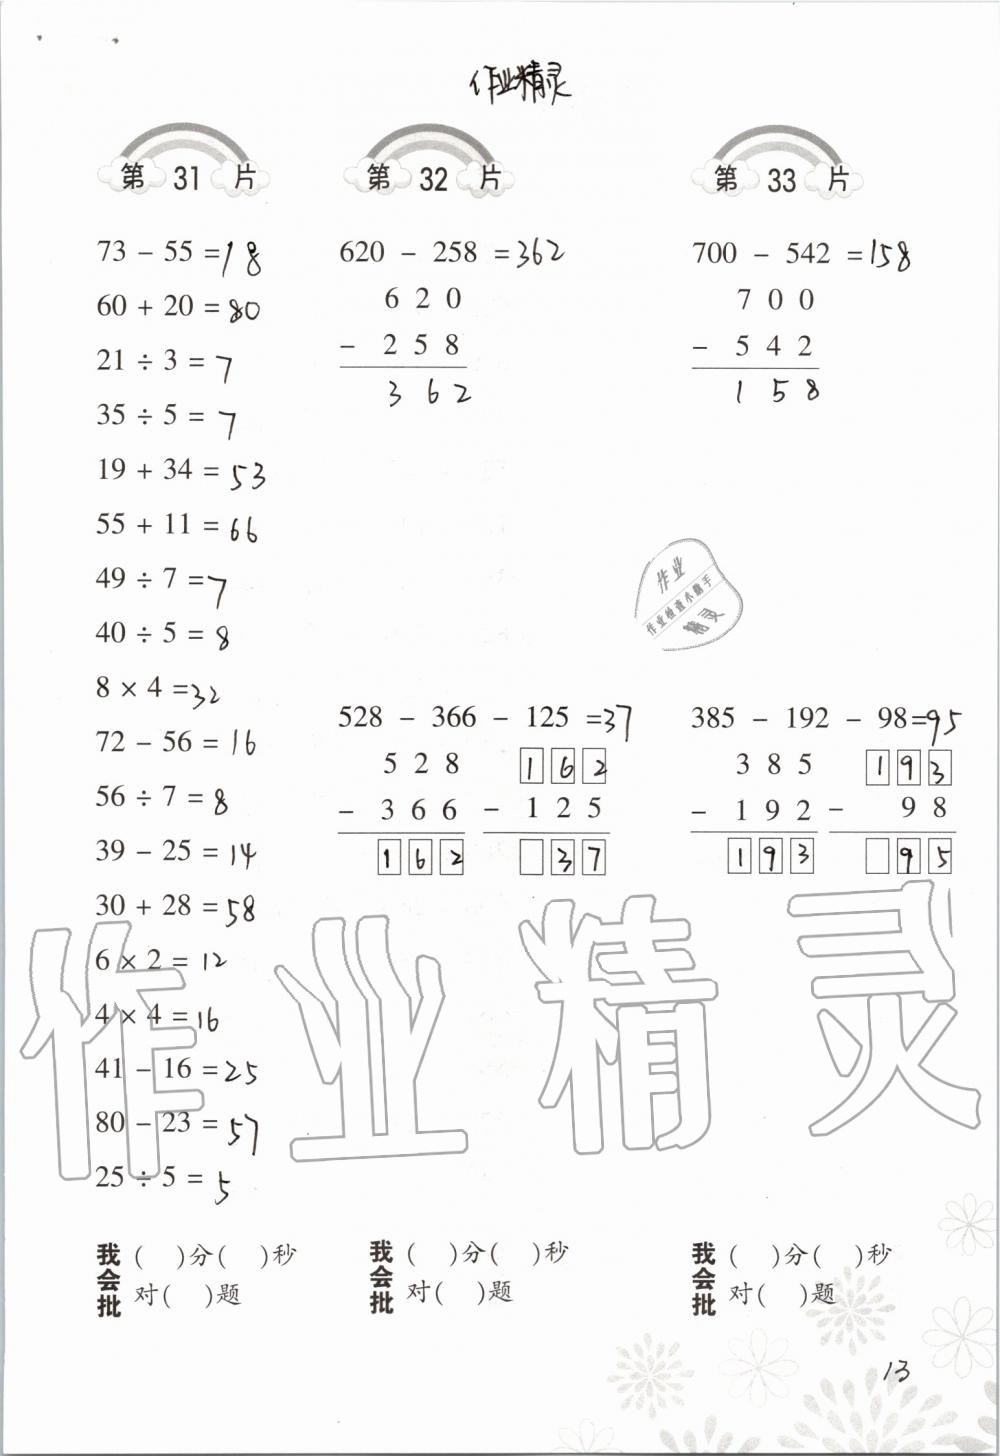 作业精灵
第 31 片
73 - 55 = 18
60 + 20 = 80
21 ÷ 3 = 7
35 ÷ 5 = 7
19 + 34 = 53
55 + 11 = 66
49 ÷ 7 = 7
40 ÷ 5 = 8
8 × 4 = 32
72 - 56 = 16
56 ÷ 7 = 8
39 - 25 = 14
30 + 28 = 58
6 × 2 = 12
4 × 4 = 16
41 - 16 = 25
80 - 23 = 57
25 ÷ 5 = 5
我会批
( )分( )秒
对( )题
第 32 片
620 - 258 = 362
6 2 0
- 2 5 8
3 6 2
528 - 366 - 125 = 37
5 2 8
- 3 6 6
1 6 2
1 6 2
- 1 2 5
3 7
我会批
( )分( )秒
对( )题
第 33 片
700 - 542 = 158
7 0 0
- 5 4 2
1 5 8
作业
作业检查小助手
精灵
385 - 192 - 98 = 95
3 8 5
- 1 9 2
1 9 3
1 9 3
- 9 8
9 5
我会批
( )分( )秒
对( )题
作业精灵
13